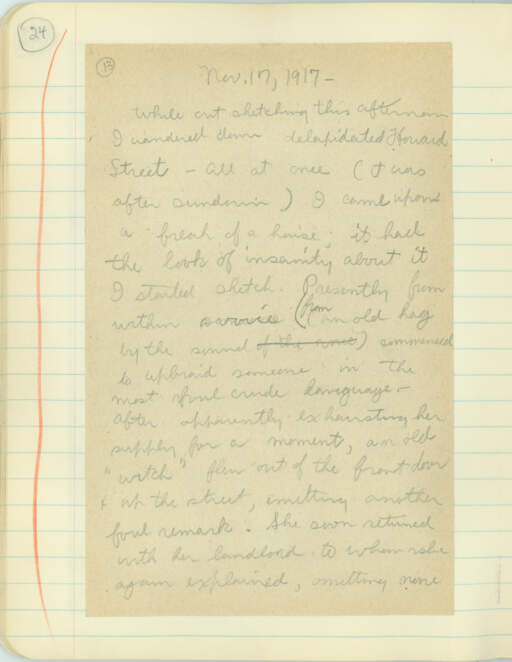 24
13
Nov. 17, 1917 -
While out sketching this afternoon
I wandered down delapidated Howard
Street - all at once (it was
after sundown) I came upon
a freak of a house; it had
the look of insanity about it
I started sketch. Presently from
within (from an old hag
by the sound of the ) commenced
to upbraid someone in the
most foul crude language -
after apparently exhausting her
supply for a moment, an old
"witch" flew out of the front door
+ up the street, emitting another
foul remark. She soon returned
with her landlord to whom she
again explained, omitting none